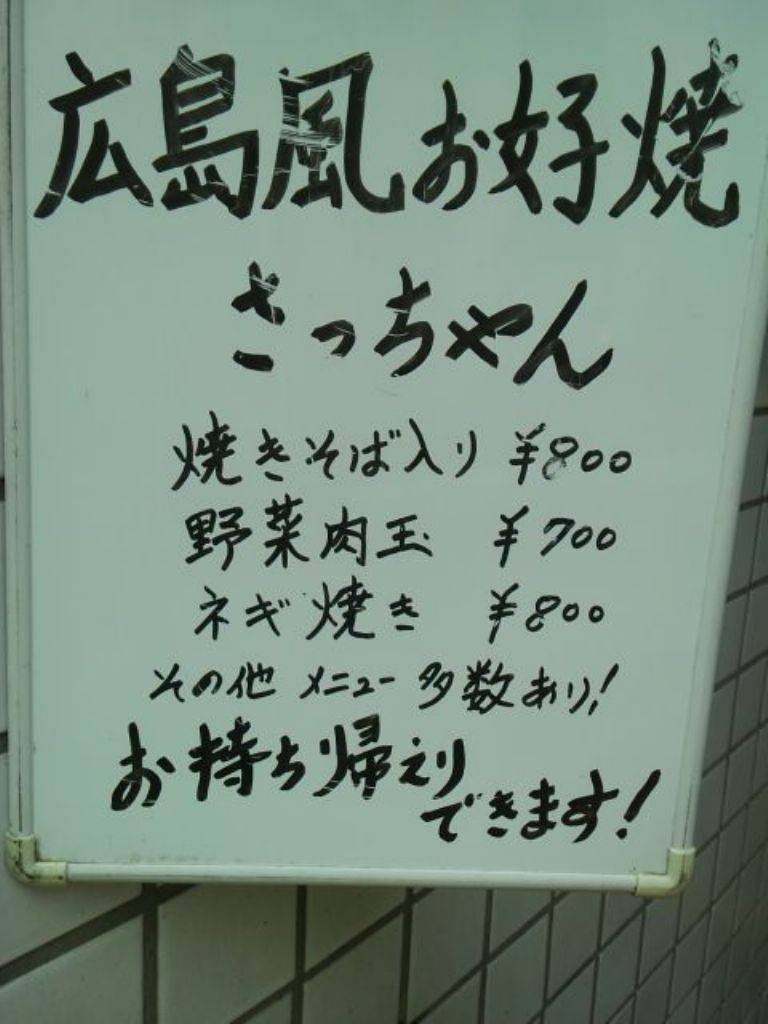 広島風お好焼
さっちゃん
焼きそば入り ¥800
野菜肉玉 ¥700
ネギ焼き ¥800
その他 メニュー 多数あり!
お持ち帰えり
できます!